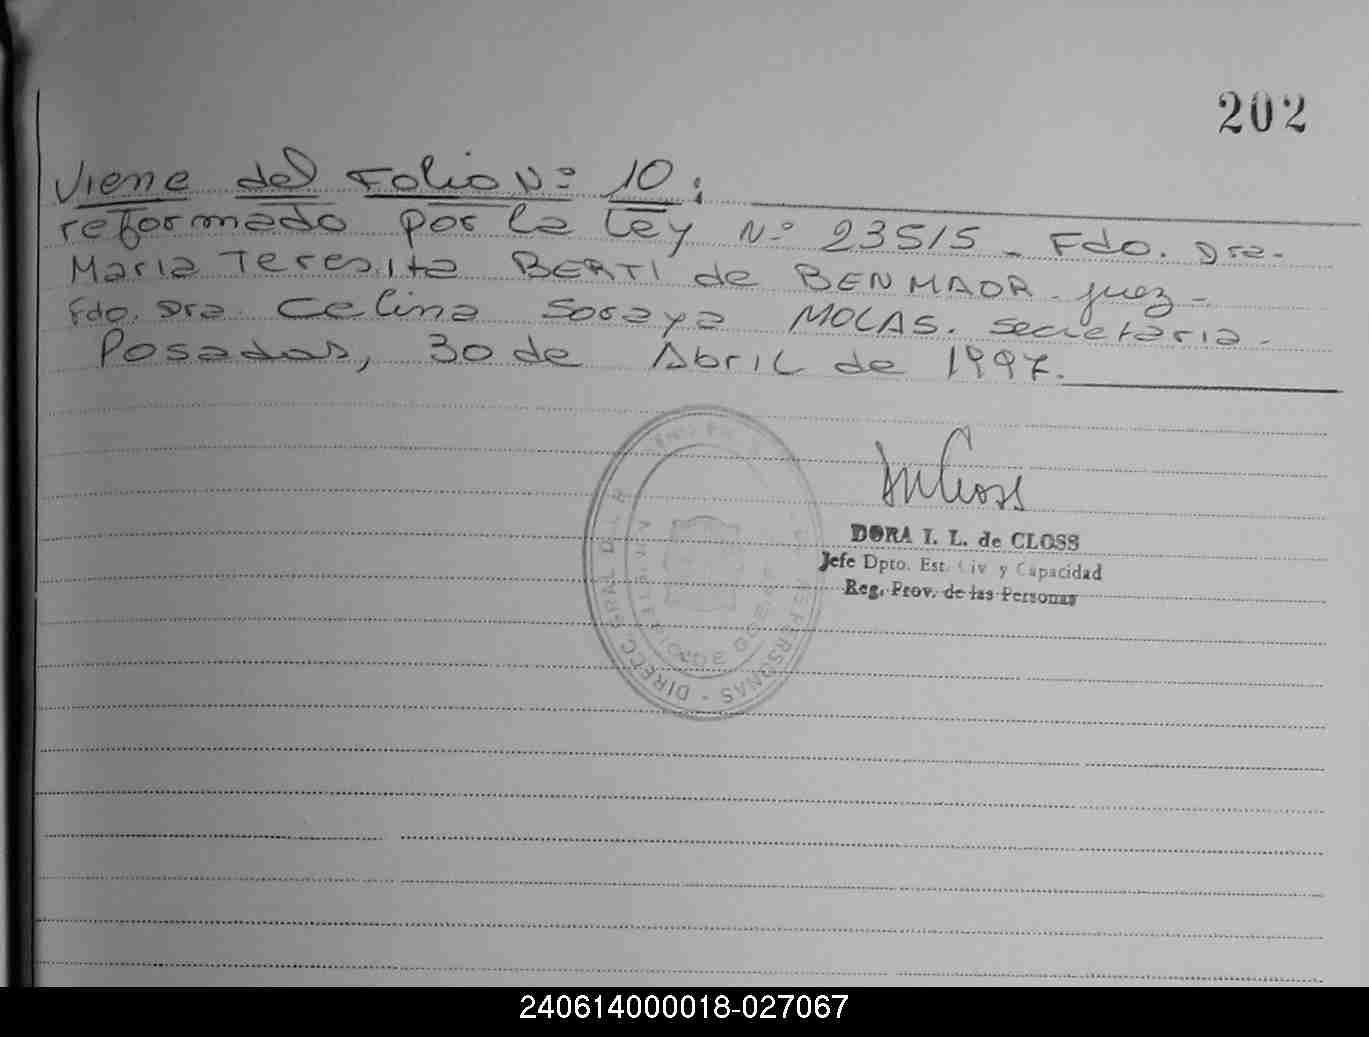 202
Viene del Folio Nº 10:
reformado por la Ley Nº 23515 - Fdo. Dra.
Maria Teresita BERTI de BENMAOR - juez -
Fdo. Dra. Celina Soraya MOLAS. secretaria -
Posadas, 30 de Abril de 1997.
DORA I. L. de CLOSS
Jefe Dpto. Est. Civ y Capacidad
Reg. Prov. de las Personas
DIRECC PERSONAS -
240614000018-027067